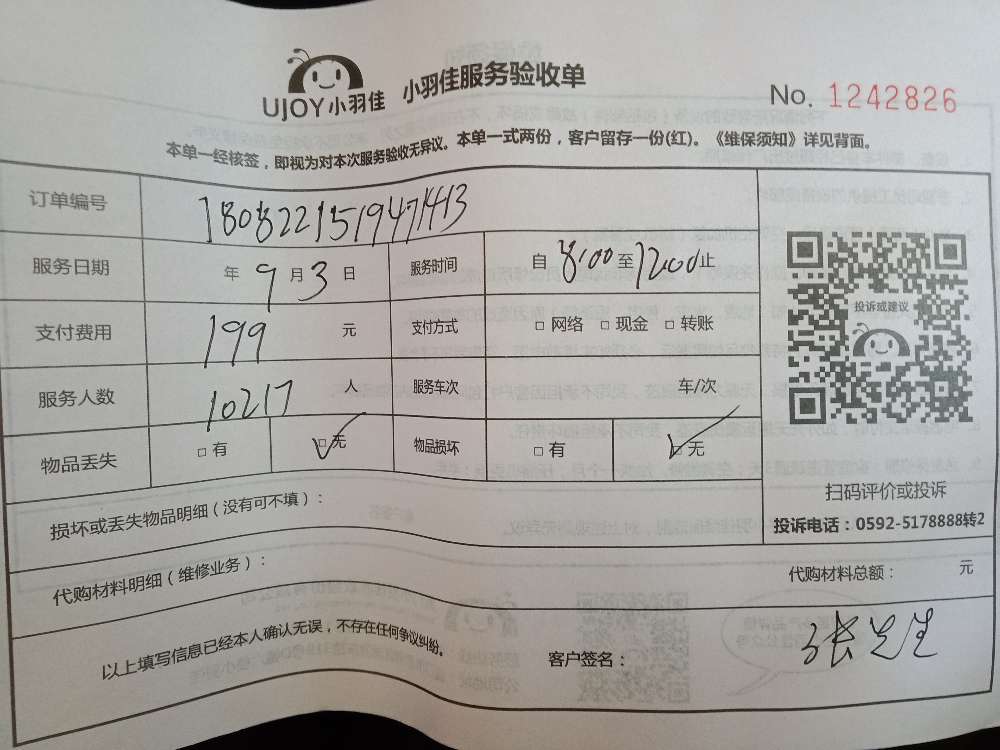 UJOY小羽佳 小羽佳服务验收单
No. 1242826
本单一经核签，即视为对本次服务验收无异议。本单一式两份，客户留存一份(红)。《维保须知》详见背面。
订单编号 180822151947413
服务日期 年 9 月 3 日 服务时间 自 8:00 至 1200 止
支付费用 199 元 支付方式 □ 网络 □ 现金 □ 转账
服务人数 10217 人 服务车次 车/次
物品丢失 □ 有 □ 无 物品损坏 □ 有 □ 无
投诉或建议
扫码评价或投诉
投诉电话：0592-5178888转2
损坏或丢失物品明细（没有可不填）：
代购材料明细（维修业务）： 代购材料总额： 元
以上填写信息已经本人确认无误，不存在任何争议纠纷。 客户签名： 张先生